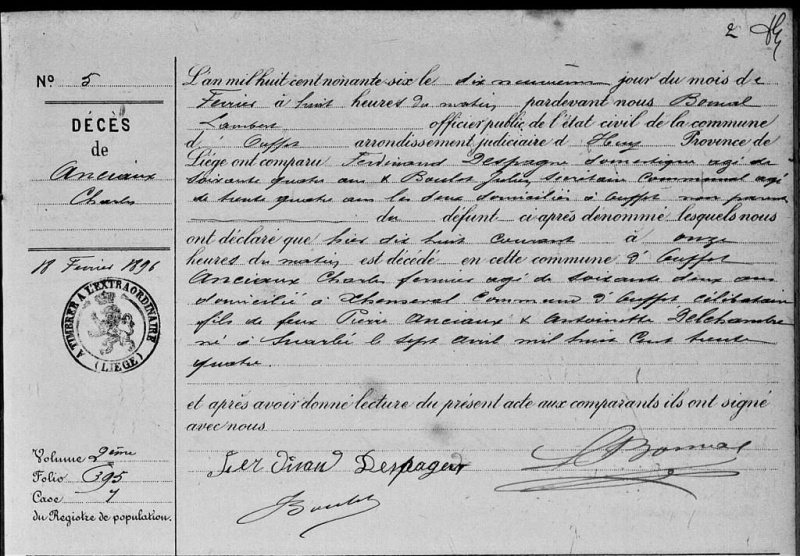 2
N° 5
DÉCÈS
de
Anciaux
Charles
18 Fevrier 1896
A TIMBRER A L'EXTRAORDINAIRE
(LIÈGE)
Volume 2ème
Folio 395
Case 7
du Registre de population.
L'an mil huit cent nonante-six le dix neuvième jour du mois de
Fevrier à huit heures du matin, pardevant nous Bonnal
Lambert officier public de l'état civil de la commune
d' Ouffet arrondissement judiciaire d Huy Province de
Liège ont comparu Ferdinand Despagne domestique agé de
soixante quatre ans & Boulot Jules, secrétaire communal agé
de trente quatre ans les deux domiciliés à Ouffet non parents
du défunt ci après dénommé lesquels nous
ont déclaré que hier dix huit courant à onze
heures du matin est décédé en cette commune d' Ouffet
Anciaux Charles fermier agé de soixante deux ans
domicilié à Commune d'Ouffet célibataire
fils de feux Pierre Anciaux & Antoinette Delchambre
né à Suarlée le sept avril mil huit cent trente
quatre.
et après avoir donné lecture du présent acte aux comparants ils ont signé
avec nous